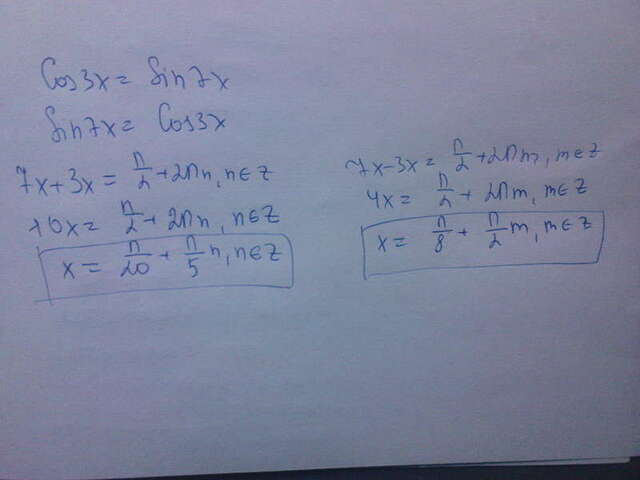 Cos3x = Sin7x
Sin7x = Cos3x
7x+3x = π/2 + 2πn, n∈Z
10x = π/2 + 2πn, n∈Z
x = π/20 + π/5 n, n∈Z
7x-3x = π/2 + 2πm, m∈Z
4x = π/2 + 2πm, m∈Z
x = π/8 + π/2 m, m∈Z